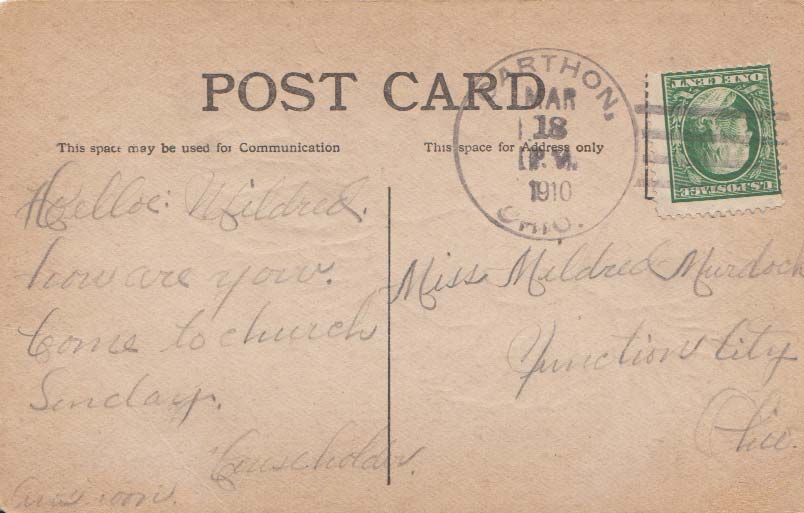 POST CARD
This space may be used for Communication
This space for Address only
ARTHON,
MAR
18
P.M.
1910
OHIO.
ONE CENT
U.S. POSTAGE
Helloe: Mildred.
how are you.
Come to church
Sunday.
Householder.
Miss Mildred Murdock
Junction City
Ohio.